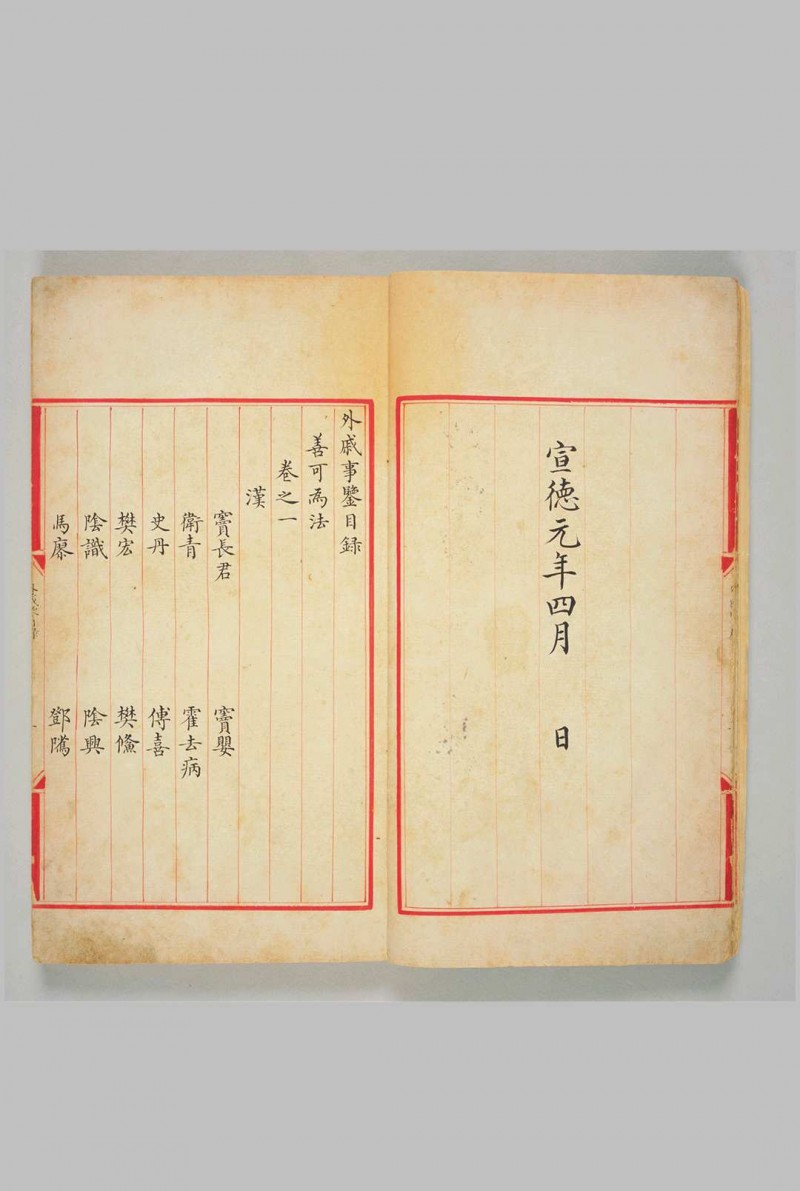 宣德元年四月　日
外戚事鑒目録
善可為法
卷之一
漢
竇長君　竇嬰
衛青　霍去病
史丹　傅喜
樊宏　樊鯈
陰識　陰興
馬廖　鄧騭